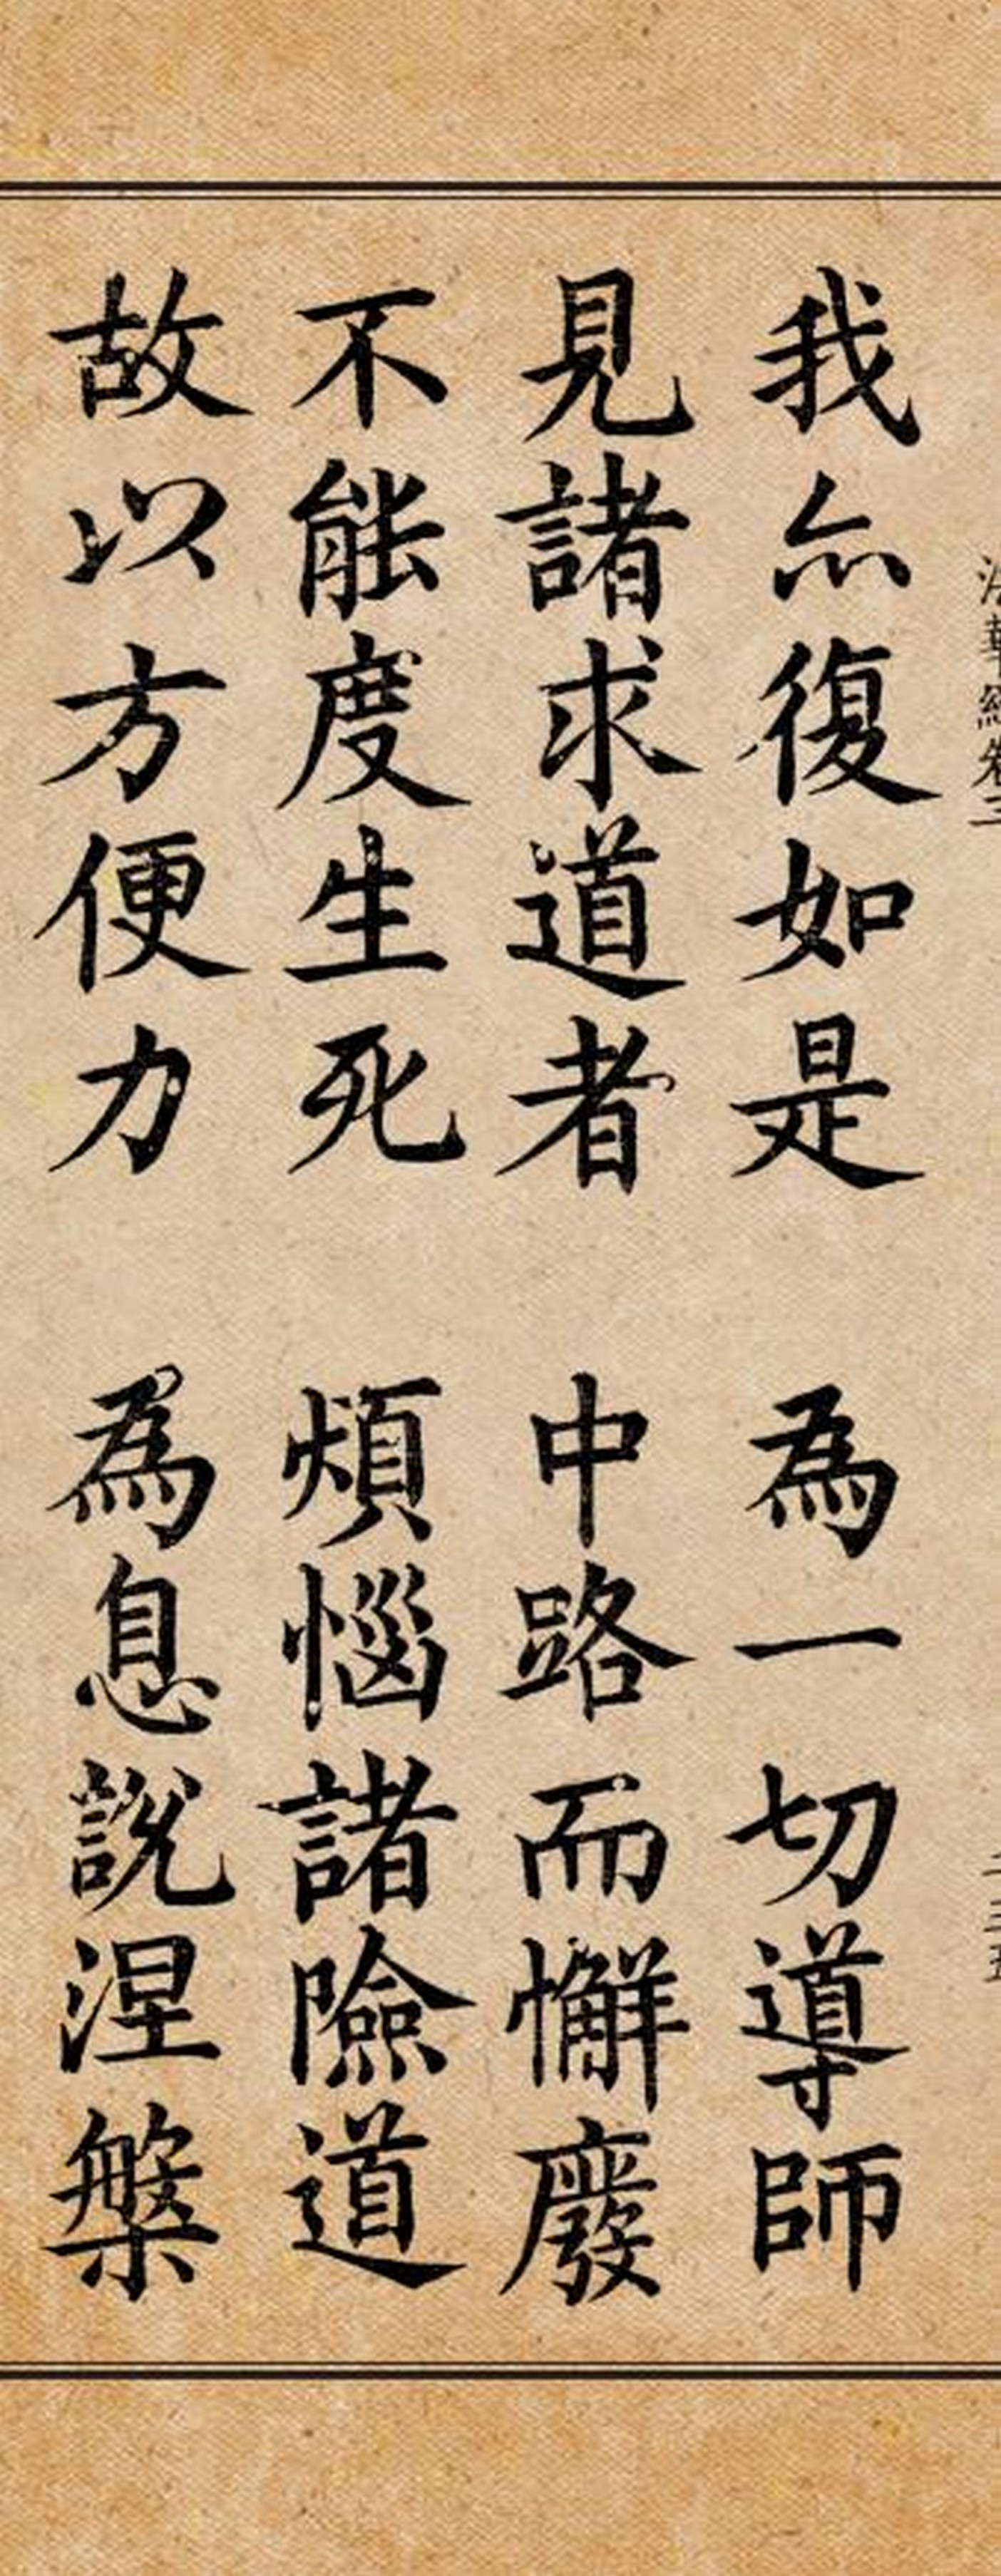 法華經卷三
二三五
我亦復如是 為一切導師
見諸求道者 中路而懈廢
不能度生死 煩惱諸險道
故以方便力 為息說涅槃